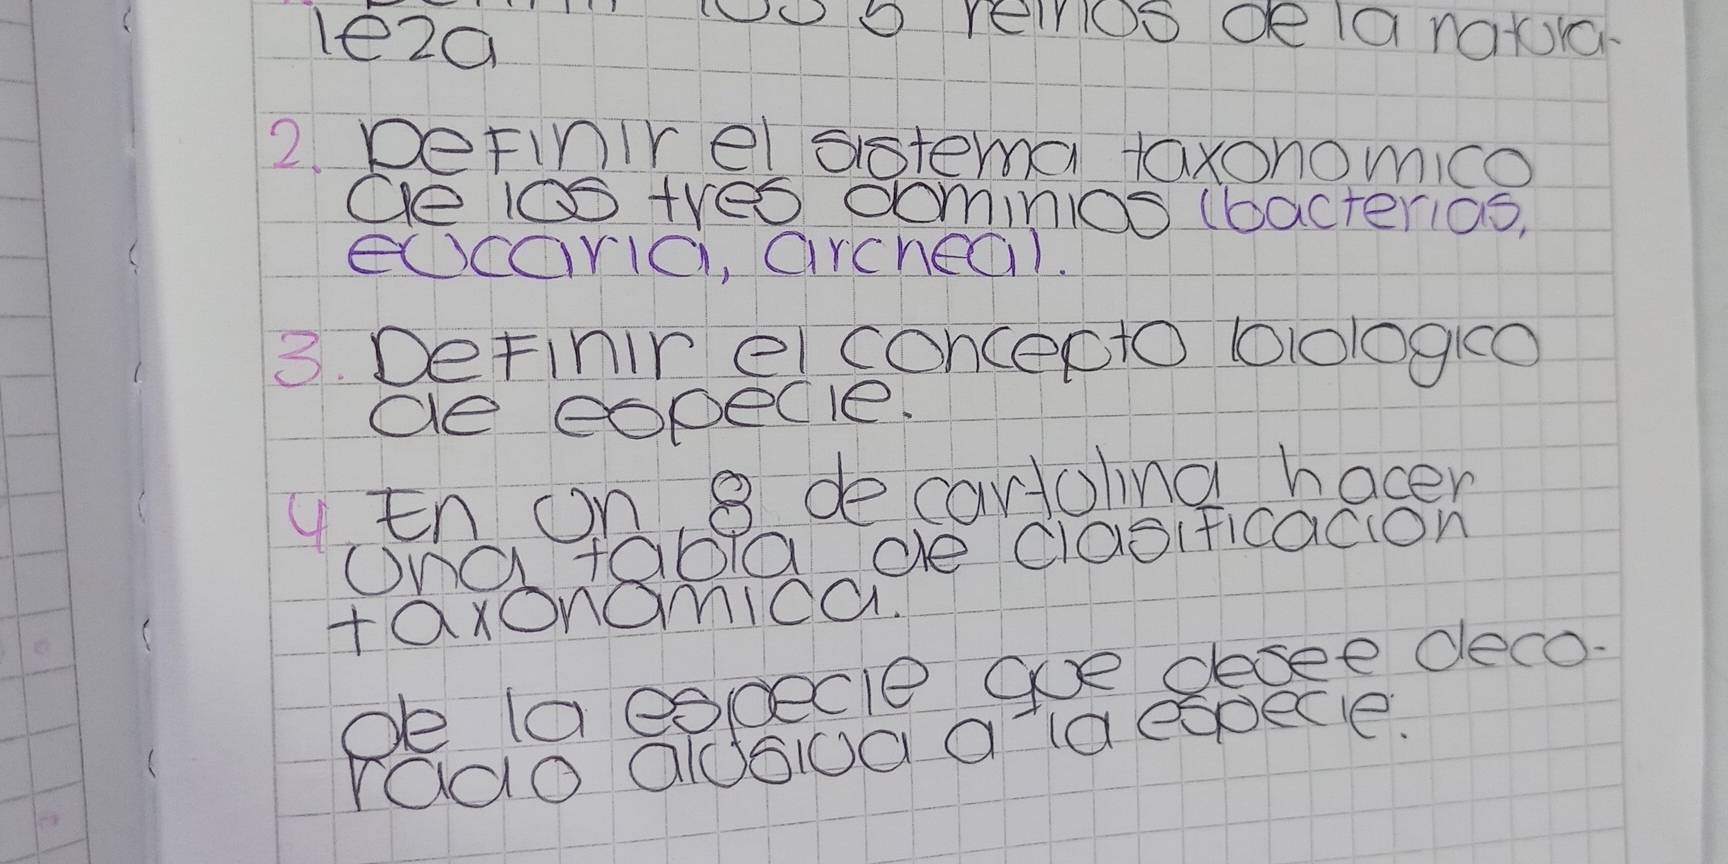 los 5 reinos de la natura-
leza
2. Definir el sistema taxonomico
de los tres dominios (bacterias,
eucaria, archea).
3. Definir el concepto biologico
de especie.
4 En un 8 de cartolina hacer
una tabla de clasificacion
taxonomica.
de la especie que desee deco-
rado alusiva a la especie.